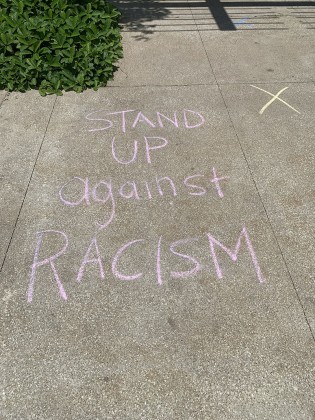 STAND
UP
against
RACISM